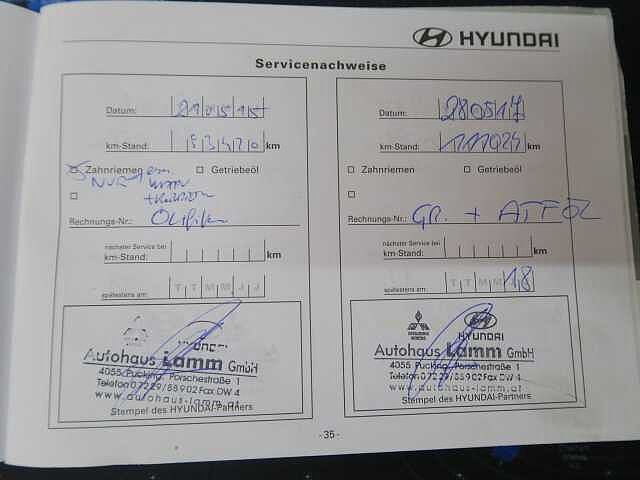 HYUNDAI
Servicenachweise
Datum:
km-Stand: km
Zahnriemen Getriebeöl
NUR
Rechnungs-Nr.:
nächster Service bei
km-Stand: km
spätestens am: T T M M J J
HYUNDAI
Autohaus Lamm GmbH
4055 Pucking, Porschestraße 1
Telefon 07229/88902 Fax DW 4
www.autohaus-lamm.at
Stempel des HYUNDAI-Partners
Datum: 280517
km-Stand: 111024 km
Zahnriemen Getriebeöl
Rechnungs-Nr.: GR. + ATF ÖL
nächster Service bei
km-Stand: km
spätestens am: T T M M 1 8
MITSUBISHI MOTORS HYUNDAI
Autohaus Lamm GmbH
4055 Pucking, Porschestraße 1
Telefon 07229/88902 Fax DW 4
www.autohaus-lamm.at
Stempel des HYUNDAI-Partners
-35-